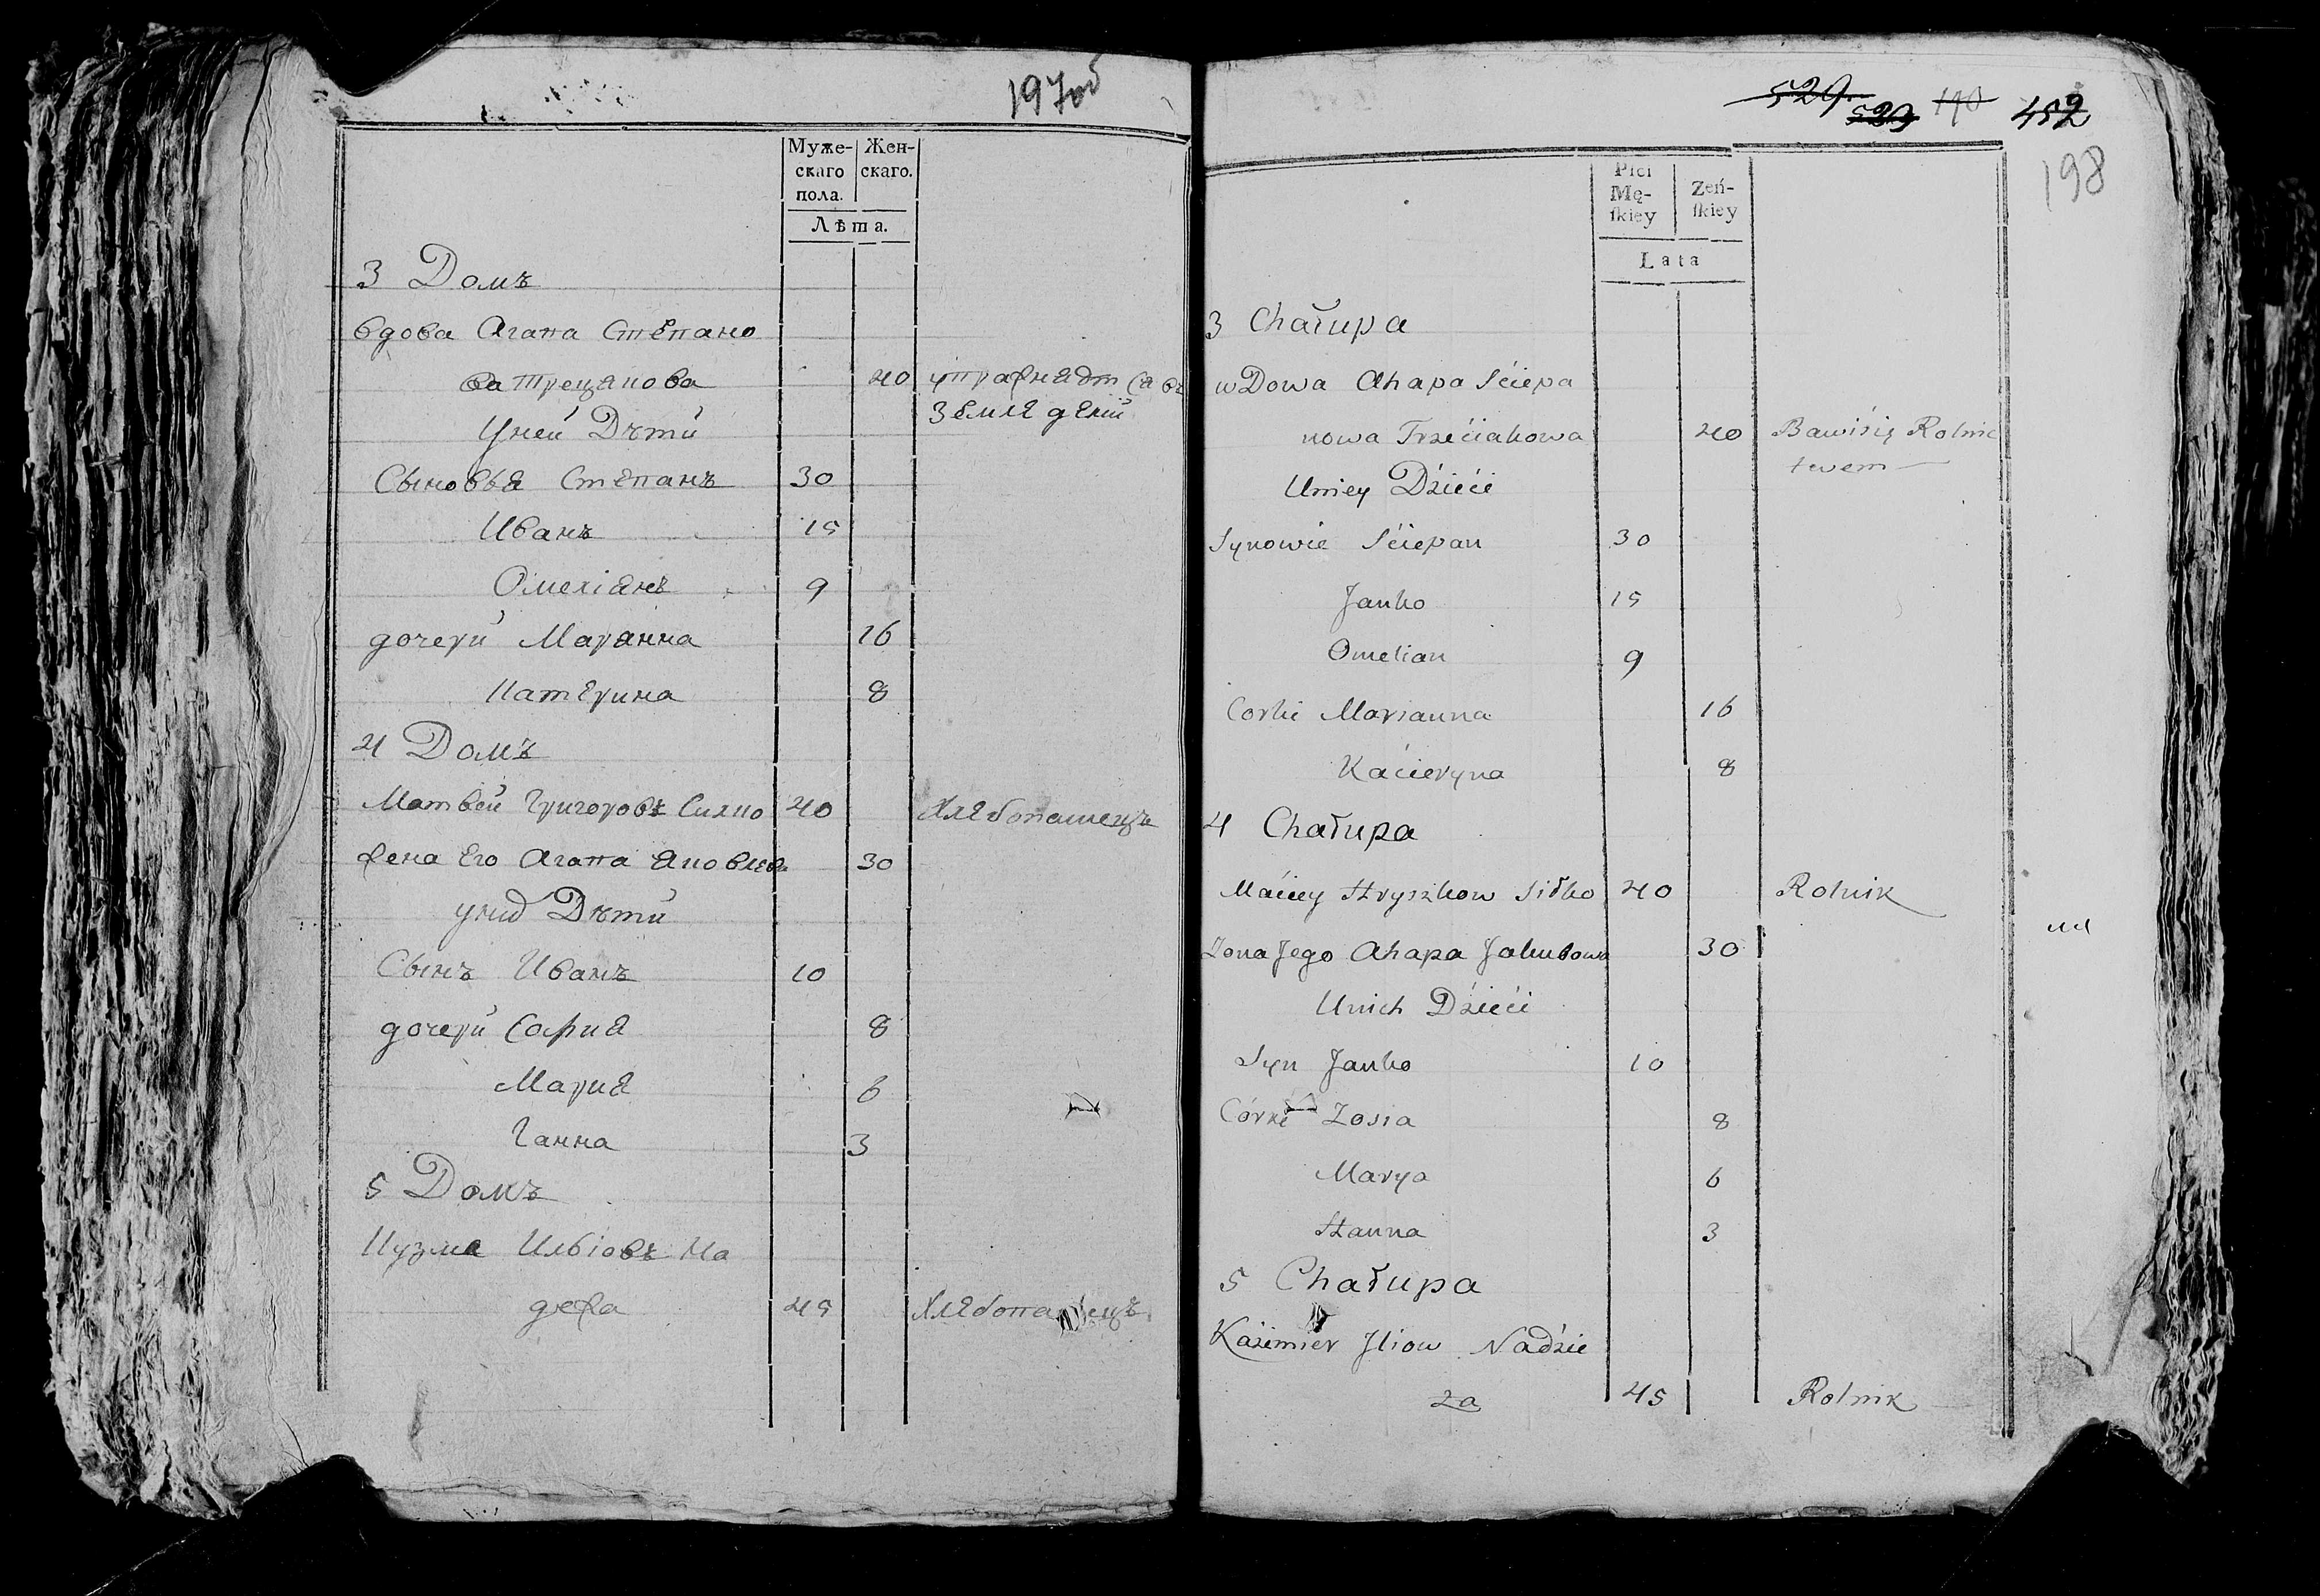 197об
Муже-
скаго
пола.
Жен-
скаго.
Лѣта.
3 Домъ
вдова Агапа Степано
ва Трецякова 40 упражняэт ся въ
Земле делій
Уней Дѣти
Сыновья Степанъ 30
Иванъ 15
Омеліянъ 9
дочери Маранна 16
Катерина 8
4 Домъ
Матвей Григоровъ Силко 40 Хлебопашецъ
жена Его Агапа Яковлева 30
уних Дѣти
Сынъ Иванъ 10
дочери София 8
Мария 6
Ганна 3
5 Домъ
Кузма Ильіовъ На
дежа 45 Хлебопашецъ
529 529 190 452
198
Płci
Mę-
ſkiey
Zeń-
ſkiey
Lata
3 Chałupa
wDowa Ahapa Sciepa
nowa Trzeciakowa 40 Bawiśię Rolnic
twem
Uniey Dzieći
Synowie Sciepan 30
Janko 15
Omelian 9
Corki Marianna 16
Kacieryna 8
4 Chałupa
Maciey Hryszkow Siłko 40 Rolnik
Zona Jego Ahapa Jakubowa 30
Unich Dzieći
Syn Janko 10
Córki Zosia 8
Marya 6
Hanna 3
5 Chałupa
Kaźimier Jliow Nadzie
za 45 Rolnik